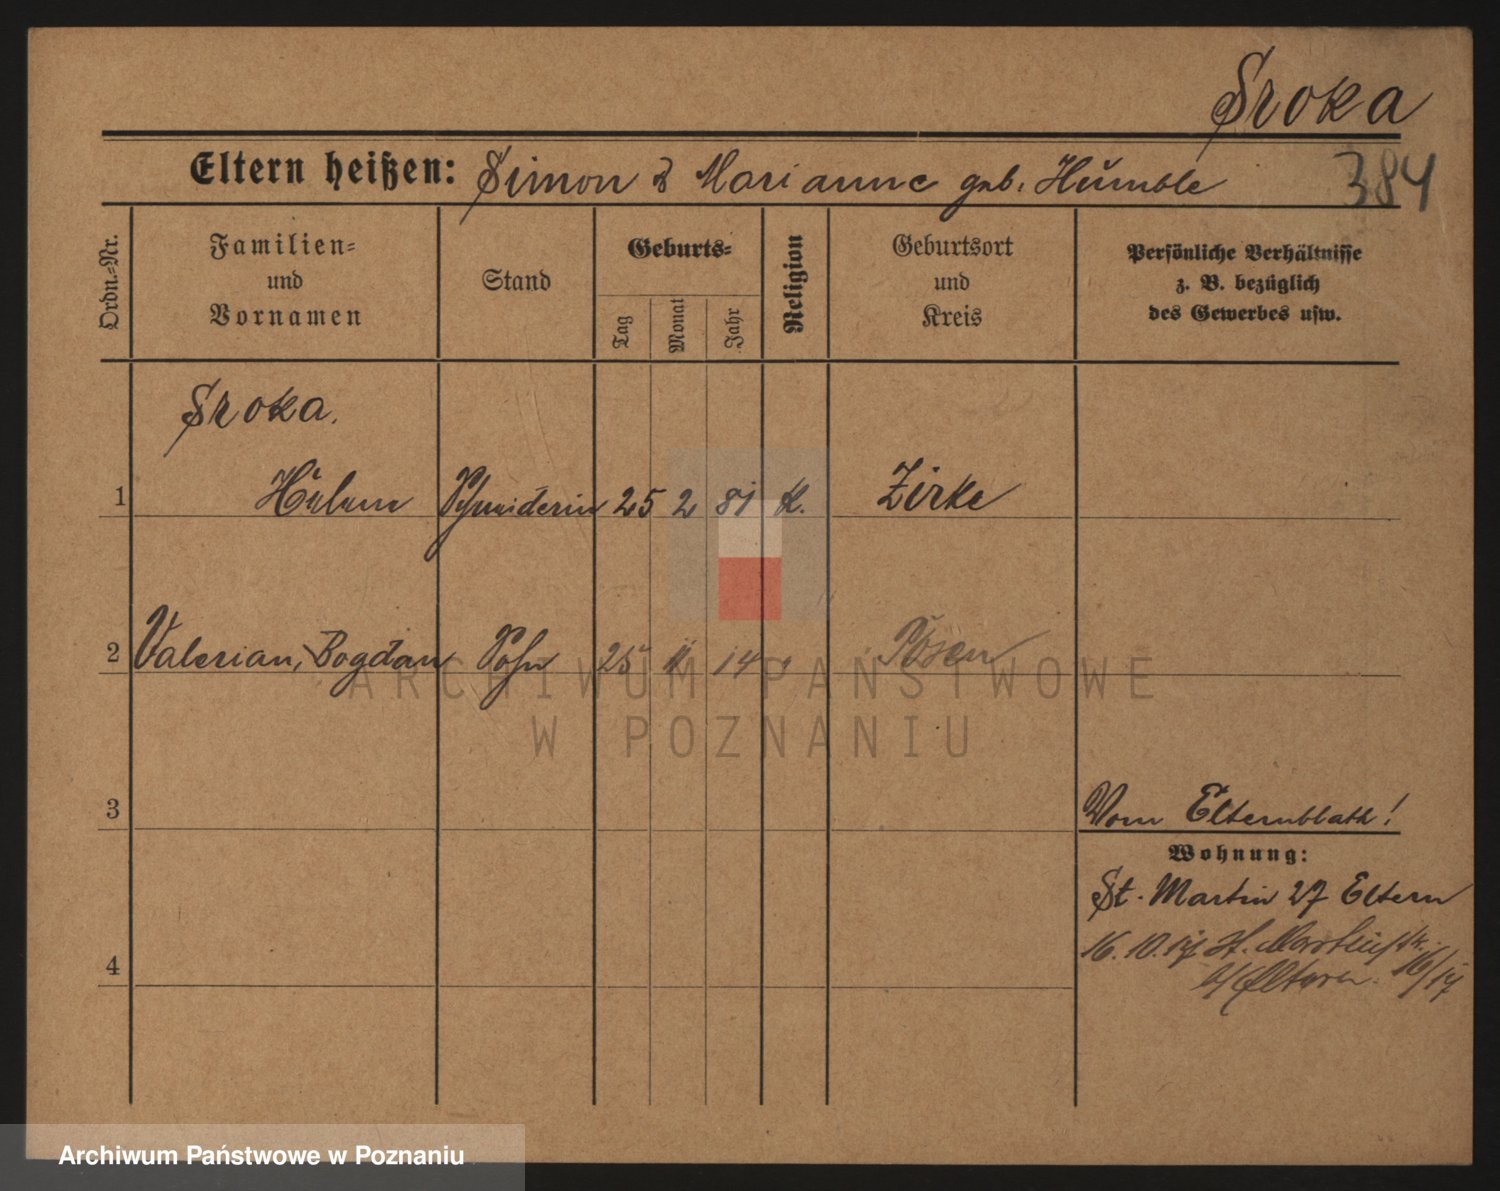 Sroka
Eltern heißen: Simon & Marianne geb. Humble
384
Ordn.=Nr.
Familien=
und
Vornamen
Stand
Geburts=
Tag
Monat
Jahr
Religion
Geburtsort
und
Kreis
Persönliche Verhältnisse
z. B. bezüglich
des Gewerbes usw.
Sroka.
1 Helene Schneiderin 25 2 81 K. Zirke
2 Valerian, Bogdan Sohn 25 11 14 " Posen
ARCHIWUM PAŃSTWOWE
W POZNANIU
3
Vom Elternblatt!
Wohnung:
St. Martin 27 Eltern
16. 10. 17 St. Martinstr.
b/Eltern. 16/17
4
Archiwum Państwowe w Poznaniu